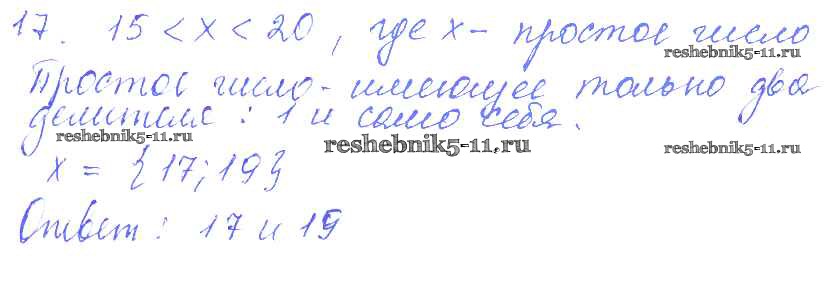 17. 15 < x < 20, где x - простое число
reshebnik5-11.ru
Простое число - имеющее только два
делителя : 1 и само себя.
reshebnik5-11.ru
reshebnik5-11.ru
reshebnik5-11.ru
x = {17; 19}
Ответ: 17 и 19